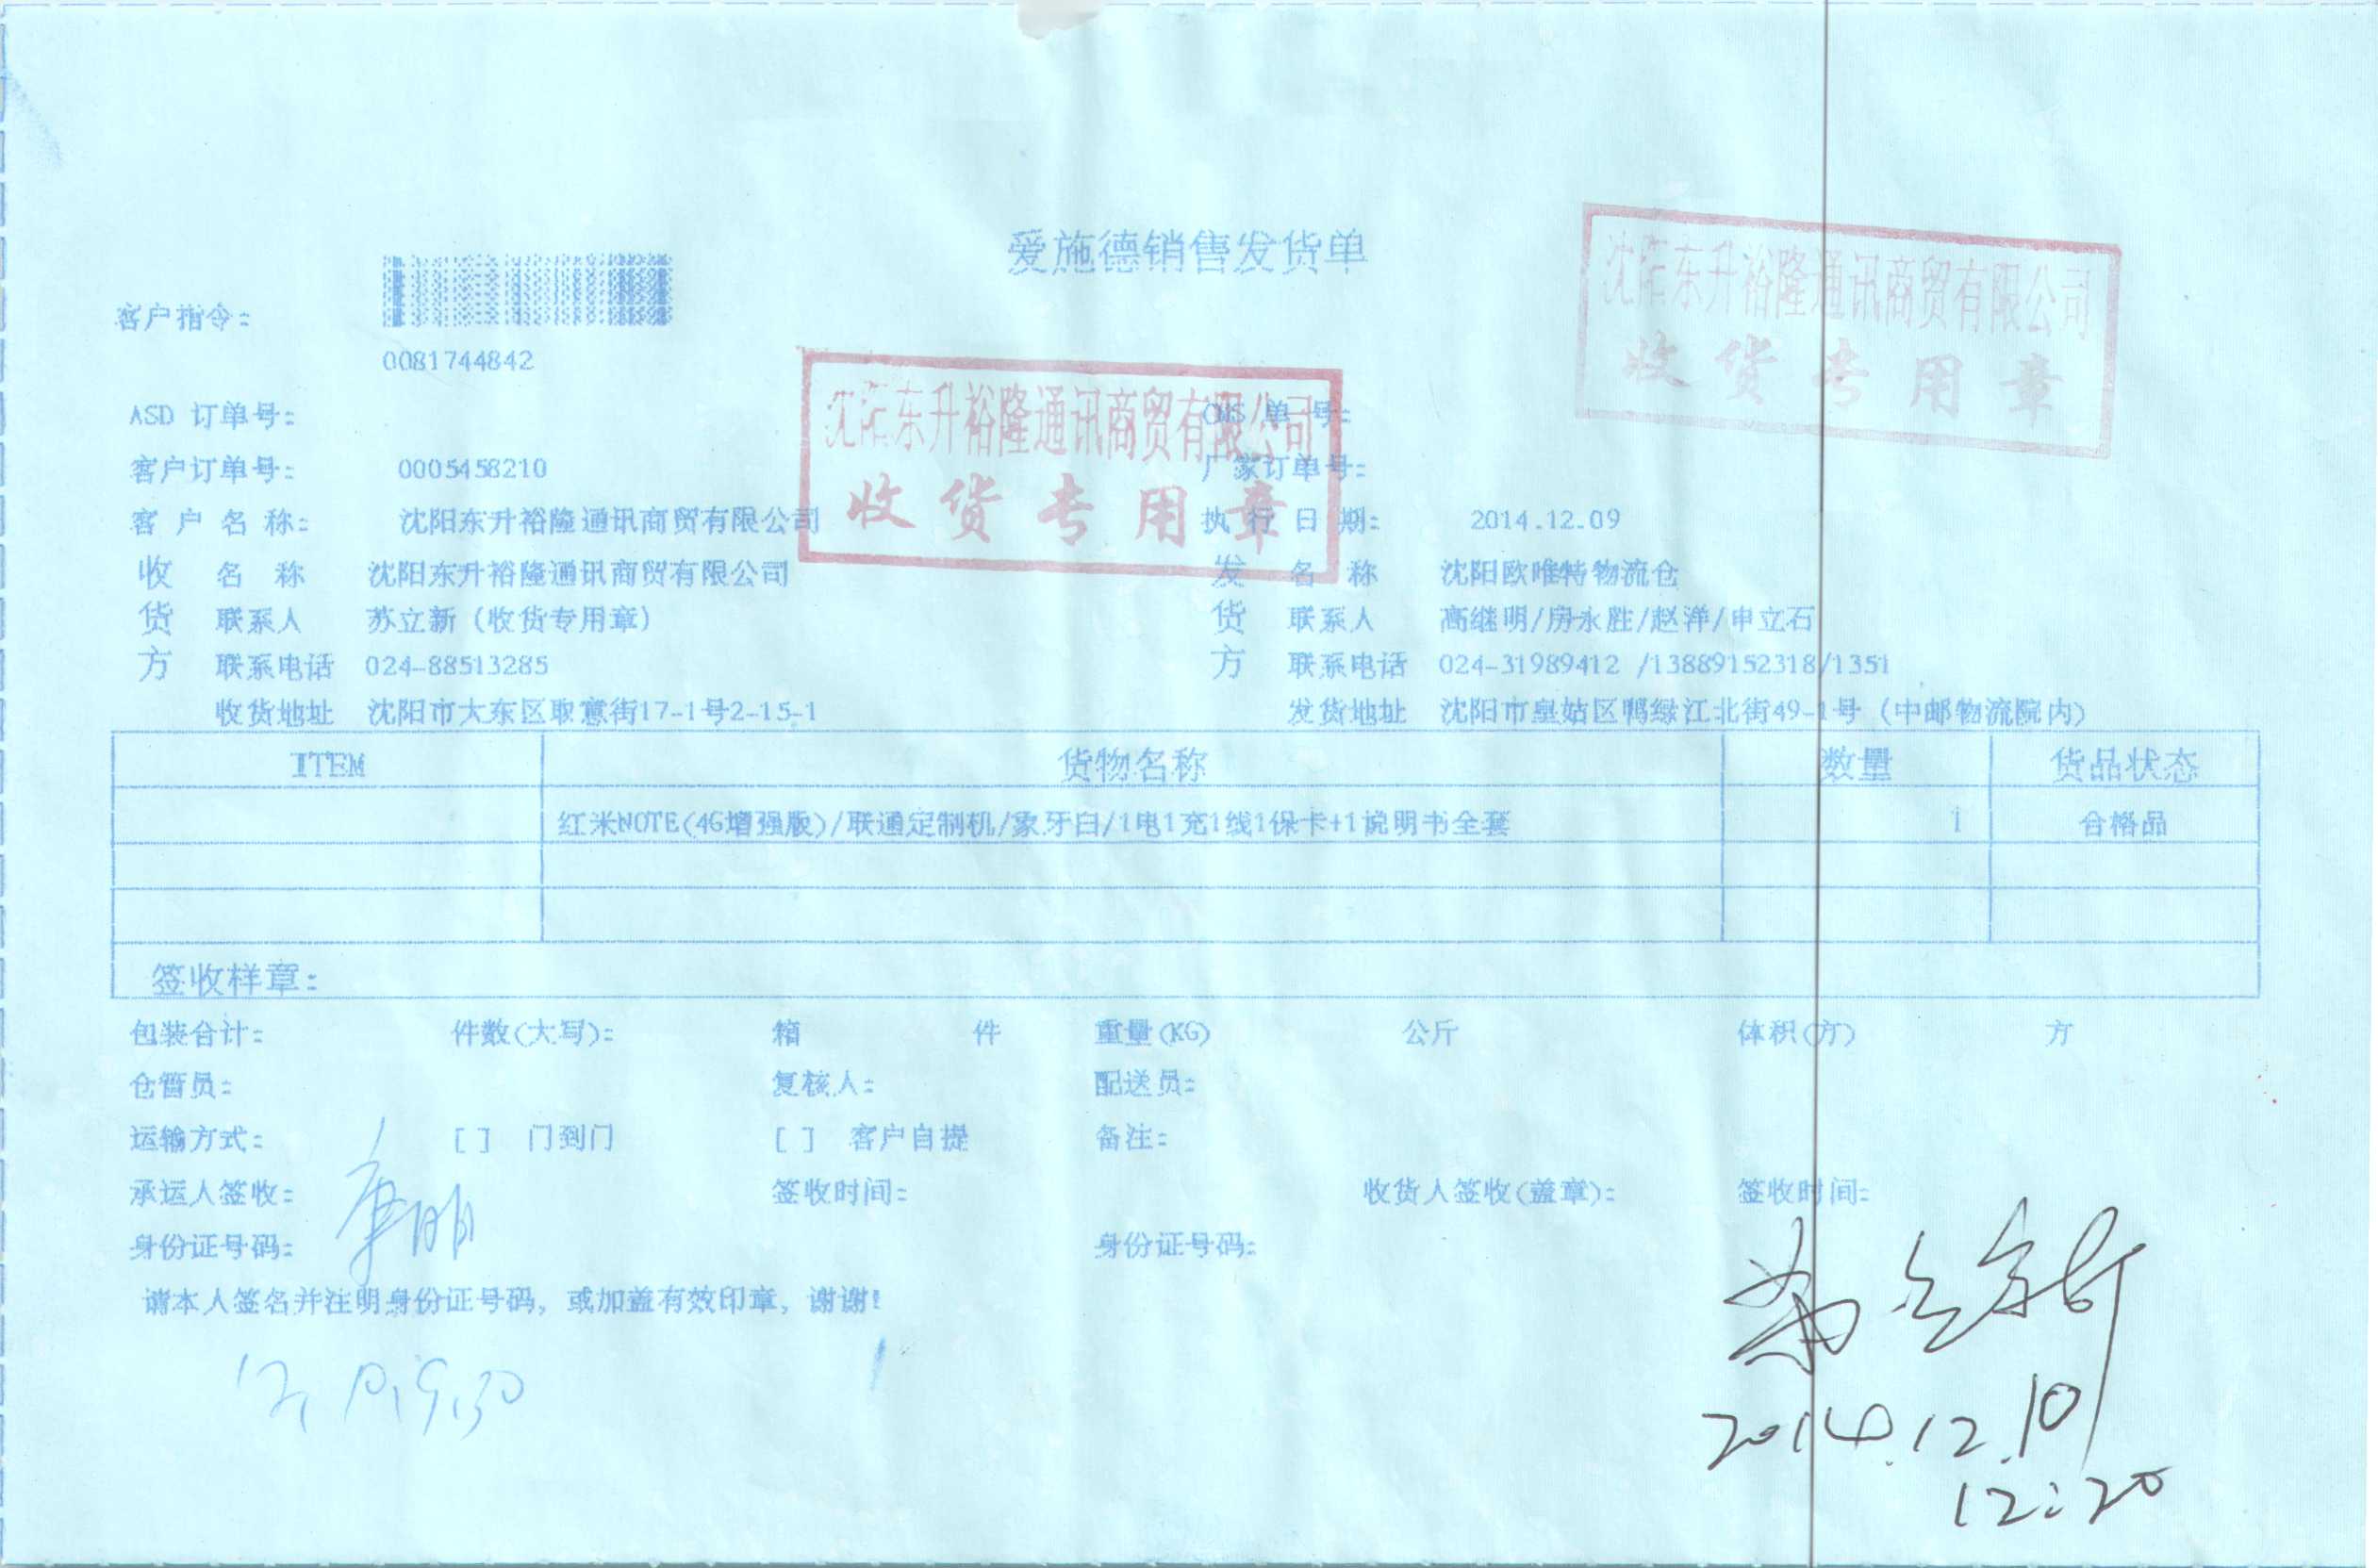 爱施德销售发货单
沈阳东升裕隆通讯商贸有限公司
收货专用章
客户指令:
0081744842
沈阳东升裕隆通讯商贸有限公司
收货专用章
ASD 订单号: OMS 单 号:
客户订单号: 0005458210 厂家订单号:
客 户 名 称: 沈阳东升裕隆通讯商贸有限公司 执 行 日 期: 2014.12.09
收 名 称 沈阳东升裕隆通讯商贸有限公司 发 名 称 沈阳欧唯特物流仓
货 联系人 苏立新 (收货专用章) 货 联系人 高继明/房永胜/赵洋/申立石
方 联系电话 024-88513285 方 联系电话 024-31989412 /13889152318/1351
收货地址 沈阳市大东区取意街17-1号2-15-1 发货地址 沈阳市皇姑区鸭绿江北街49-1号 (中邮物流院内)
ITEM 货物名称 数量 货品状态
红米NOTE(4G增强版)/联通定制机/象牙白/1电1充1线1保卡+1说明书全套 1 合格品
签收样章:
包装合计: 件数(大写): 箱 件 重量(KG) 公斤 体积(方) 方
仓管员: 复核人: 配送员:
运输方式: [ ] 门到门 [ ] 客户自提 备注:
承运人签收: 签收时间: 收货人签收(盖章): 签收时间:
身份证号码: 身份证号码:
请本人签名并注明身份证号码, 或加盖有效印章, 谢谢!
苏立新
2014.12.10
12:20